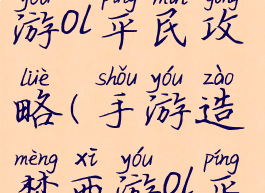 yóu píng mín gōng
游OL平民攻
lüè shǒu yóu zào
略(手游造
mèng xī yóu píng
梦西游OL平